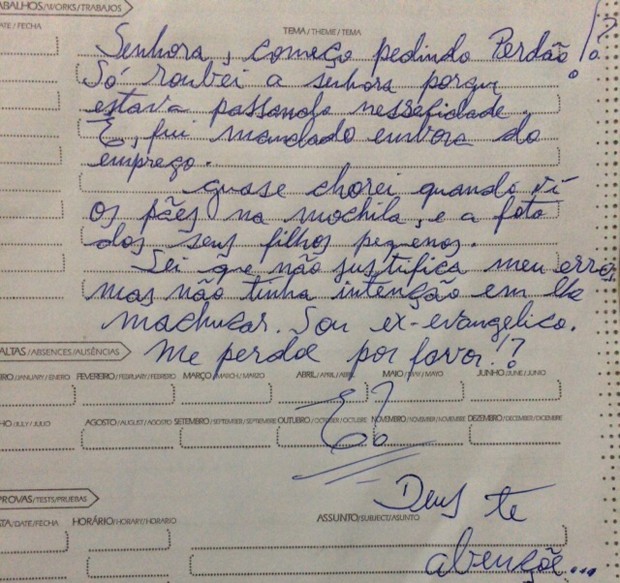 ABALHOS/WORKS/TRABAJOS
ATE / FECHA
TEMA / THEME / TEMA
Senhora, começo pedindo Perdão!?
Só roubei a senhora porque
estava passando nessecidade.
E, fui mandado embora do
emprego.
quase chorei quando vi
os pães na mochila, e a foto
dos seus filhos pequenos.
Sei que não justifica meu erro,
mas não tinha intenção em lhe
machucar. Sou ex-evangelico.
ALTAS / ABSENCES / AUSÊNCIAS
Me perdoe por favor!?
RO / JANUARY / ENERO FEVEREIRO / FEBRUARY / FEBRERO MARÇO / MARCH / MARZO ABRIL / APRIL / ABRIL MAIO / MAY / MAYO JUNHO / JUNE / JUNIO
HO / JULY / JULIO AGOSTO / AUGUST / AGOSTO SETEMBRO / SEPTEMBER / SEPTIEMBRE OUTUBRO / OCTOBER / OCTUBRE NOVEMBRO / NOVEMBER / NOVIEMBRE DEZEMBRO / DECEMBER / DICIEMBRE
PROVAS / TESTS / PRUEBAS
Deus te
TA / DATE / FECHA HORÁRIO / HORARY / HORARIO ASSUNTO / SUBJECT / ASUNTO
abençõe...